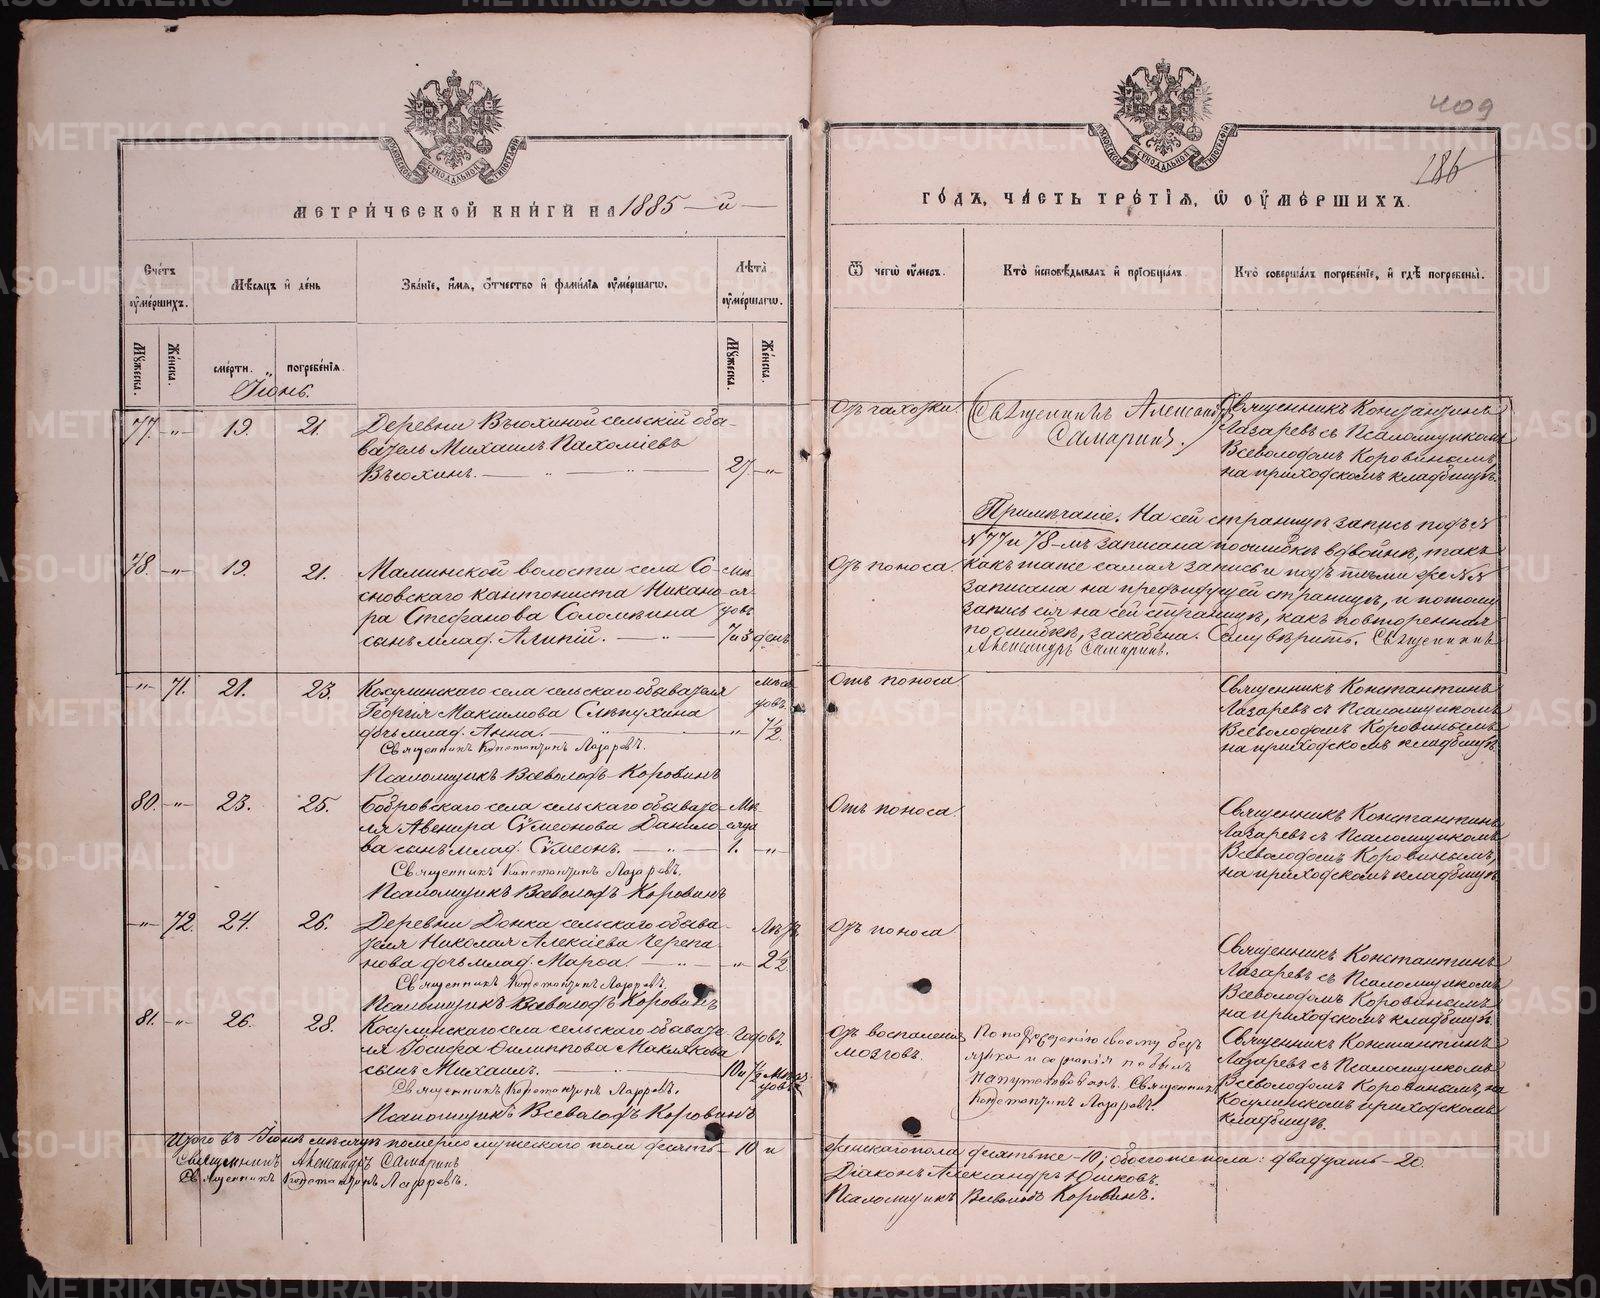 МЕТРИ́ЧЕСКОЙ КНИ́ГИ НА 1885 — й —
Счетъ оумершихъ.
Мѣсяцъ и день
Званіе, имя, отчество и фамилія оумершагѡ.
Лѣта оумершагѡ.
Мужеска.
Женска.
смерти.
погребенія.
Мужеска.
Женска.
Іюнь.
77. — „ — 19. 21. Деревни Вьюхиной сельскій обы-
ватель Михаилъ Пахоміевъ
Вьюхинъ. — „ — „ — 27 — „
78. — „ — 19. 21. Маминской волости села Со- мѣ-
сновскаго кантониста Никано- ся-
ра Стефанова Соломеина цовъ
сынъ млад. Алипій. — „ — 7 и 3 день
— „ — 71. 21. 23. Косулинскаго села сельскаго обывателя мѣся
Георгія Максимова Слѣпухина цовъ.
дочь млад. Анна. — „ — „ 7½.
Священникъ Константинъ Лазаревъ.
Псаломщикъ Всеволодъ Коровинъ
80. — „ — 23. 25. Бобровскаго села сельскаго обывате- Мѣ-
ля Авенира Сѵмеонова Данило- сяца
ва сынъ млад. Сѵмеонъ. — „ — 1. — „ —
Священникъ Константинъ Лазаревъ.
Псаломщикъ Всеволодъ Коровинъ
— „ — 72. 24. 26. Деревни Донка сельскаго обыва-
теля Николая Алексіева Черепа- Лѣтъ
нова дочь млад. Марѳа. — „ — „ 2½
Священникъ Константинъ Лазаревъ.
Псаломщикъ Всеволодъ Коровинъ
81. — „ — 26. 28. Косулинскаго села сельскаго обывате- Годовъ.
ля Іосифа Филиппова Маклакова
сынъ Михаилъ. — „ — 10 и ½ мѣся
цовъ
Священникъ Константинъ Лазаревъ.
Псаломщикъ Всеволодъ Коровинъ
Итого въ Іюнѣ мѣсяцѣ померло мужескаго пола десять — 10 и
Священникъ Александръ Самаринъ
Священникъ Константинъ Лазаревъ.
409
186
ГОДЪ, ЧАСТЬ ТРЕТІЯ, Ѡ ОУМЕРШИХЪ.
Ѿ чегѡ оумеръ.
Кто исповѣдывалъ и пріобщалъ.
Кто совершалъ погребеніе, и гдѣ погребены.
Отъ чахотки.
Священникъ Александръ
Самаринъ.
Священникъ Константинъ
Лазаревъ съ Псаломщикомъ
Всеволодомъ Коровинымъ,
на приходскомъ кладбищѣ.
Примѣчаніе. На сей страницѣ запись подъ №
№ 77 и 78-мъ записана по ошибкѣ вдвойнѣ, такъ
какъ таже самая запись и подъ тѣми же №№
записана на предъидущей страницѣ, и потому
запись сія на сей страницѣ, какъ повторенная
по ошибкѣ, заскоблена. Сему вѣрить. Священникъ
Александръ Самаринъ.
Отъ поноса
Отъ поноса
Священникъ Константинъ
Лазаревъ съ Псаломщикомъ
Всеволодомъ Коровинымъ
на приходскомъ кладбищѣ.
Отъ поноса.
Священникъ Константинъ
Лазаревъ съ Псаломщикомъ
Всеволодомъ Коровинымъ,
на приходскомъ кладбищѣ
Отъ поноса
Священникъ Константинъ
Лазаревъ съ Псаломщикомъ
Всеволодомъ Коровинымъ
на приходскомъ кладбищѣ.
Отъ воспаленія
мозговъ.
По по рожденію своему безъ
языка и со небылъ
напутствованъ. Священникъ
Константинъ Лазаревъ.
Священникъ Константинъ
Лазаревъ съ Псаломщикомъ
Всеволодомъ Коровинымъ, на
Косулинскомъ приходскомъ
кладбищѣ.
женскаго пола десять же — 10; обоего же пола: двадцать — 20.
Діаконъ Александръ Юшковъ.
Псаломщикъ Всеволодъ Коровинъ.
METRIKI.GASO-URAL.RU